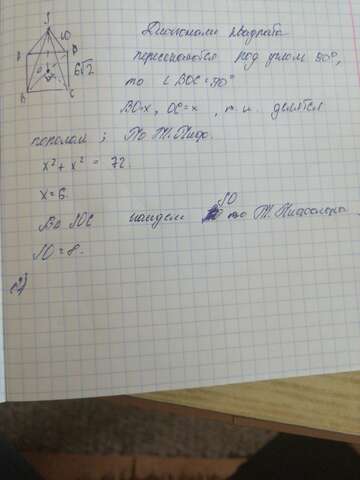 S
10
A
D
6√2
O
B
C
Диагонали квадрата
пересекаются под углом 90°,
то ∠ BOC = 90°
BO=x, OC=x, т. к. делятся
пополам; По Т. Пифа.
x² + x² = 72.
x = 6.
Из SOC найдем SO по Т. Пифагора.
SO = 8.